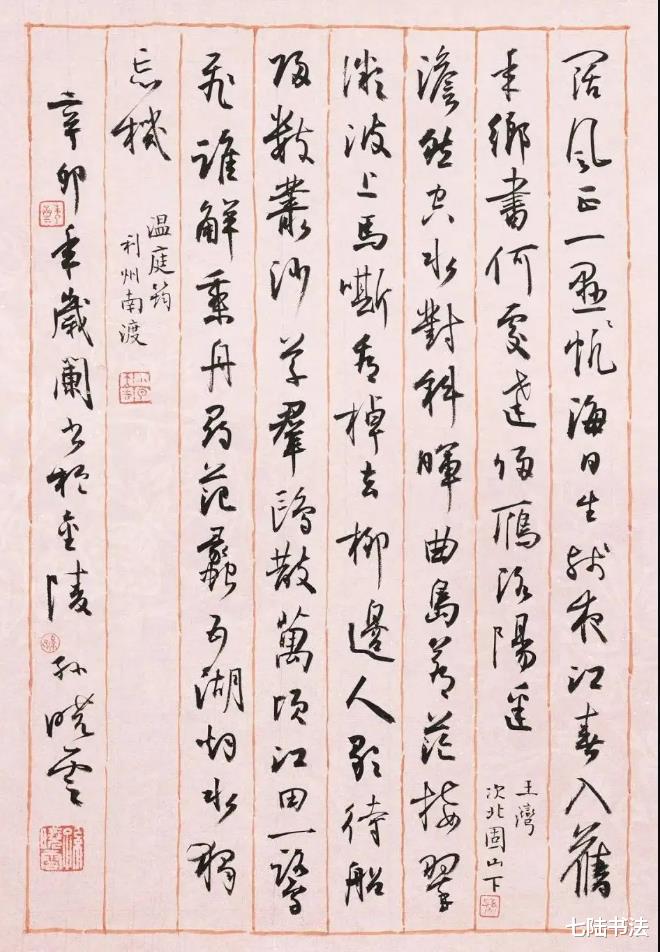 闊風正一懸帆海日生殘夜江春入舊
年鄉書何處達歸雁洛陽邊
王灣
次北固山下
澹然空水對斜暉曲島蒼茫接翠
微波上馬嘶看棹去柳邊人歇待船
歸數叢沙草羣鷗散萬頃江田一鷺
飛誰解乘舟尋范蠡五湖烟水獨
忘機
温庭筠
利州南渡
辛卯年歲闌書於金陵孫曉雲
七陆书法